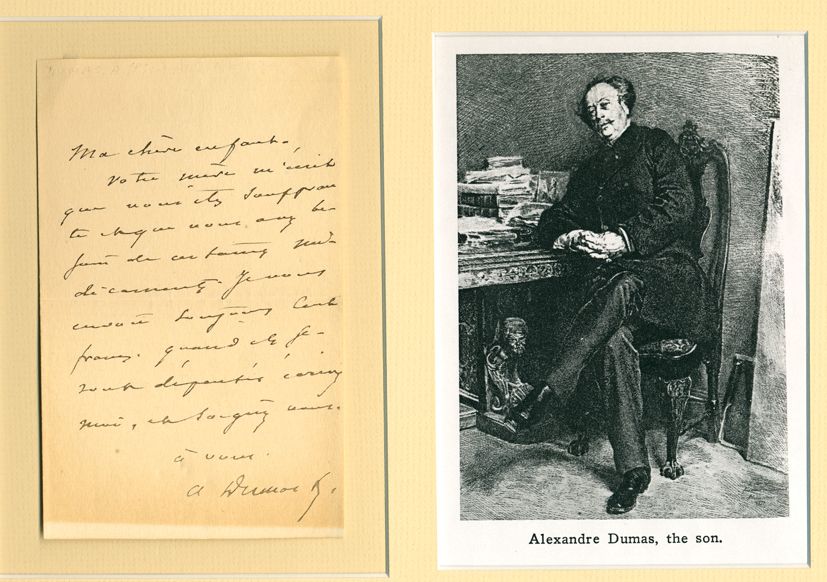 Ma chère enfant,
Votre mère m'écrit
que vous êtes souffran
te et que vous avez be-
soin de certains mé-
dicaments. Je vous
envoie toujours cent
francs. quand ils se-
ront dépensés écrivez
moi, et soignez vous.
à vous.
A Dumas f.
Alexandre Dumas, the son.